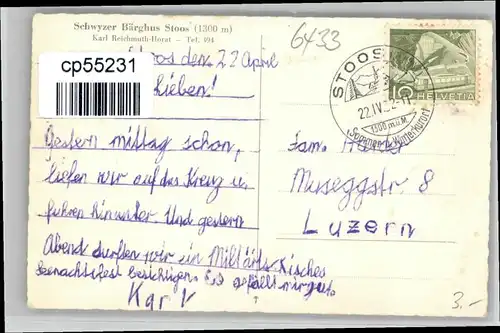 Schwyzer Bärghus Stoos (1300 m)
Karl Reichmuth-Horat — Tel. 494
6433
Stoos den 22 April
cp55231
Lieben!
STOOS
22.IV.52-11
1300 m.ü.M.
Sommer- u. Winterkurort
10 HELVETIA
Gestern mittag schon,
liefen wir auf das Kreuz u.
fuhren hinunter. Und gestern
Abend durften wir ein Militärs-
besichtigen. Es gefällt mir gut.
Karl
Fam.
Museggstraße. 8
Luzern
3.-